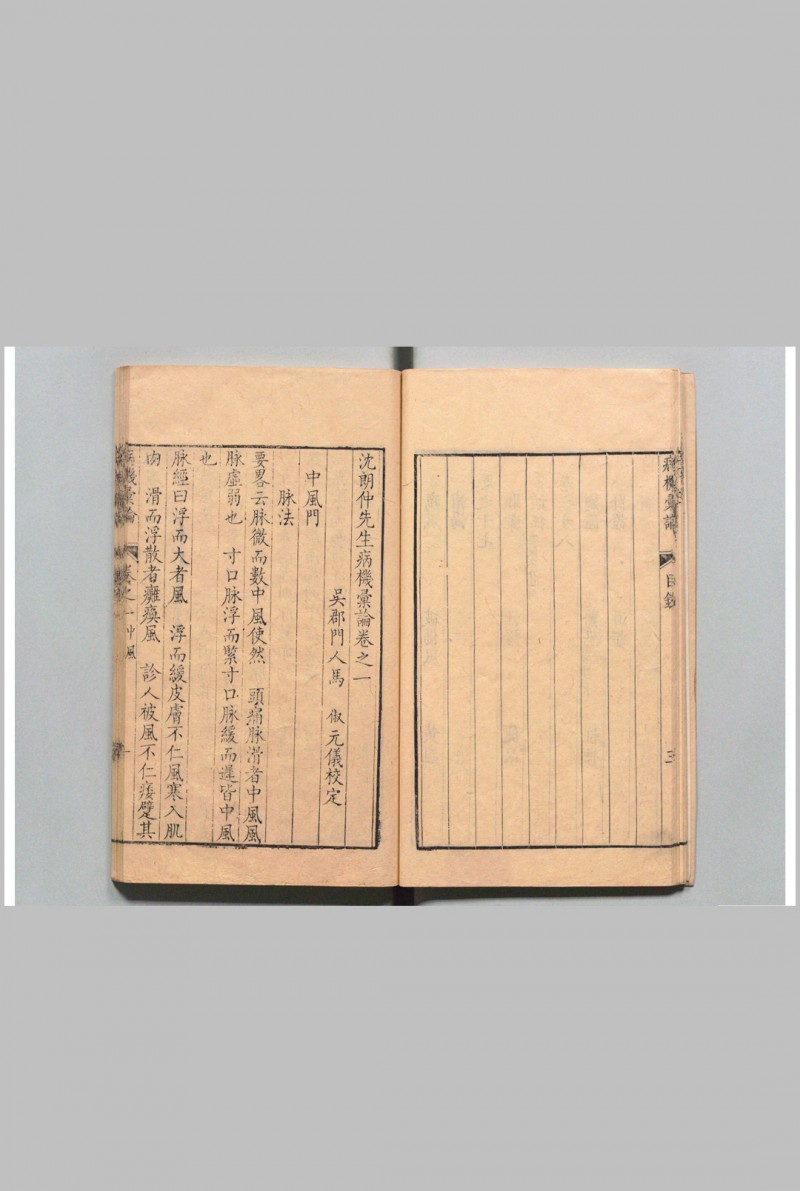 病機彙論 目錄 三
沈朗仲先生病機彙論卷之一
吳郡門人馬 俶元儀校定
中風門
脉法
要畧云脉微而數中風使然 頭痛脉滑者中風風
脉虛弱也 寸口脉浮而緊寸口脉緩而遲皆中風
也
脉經曰浮而大者風 浮而緩皮膚不仁風寒入肌
肉 滑而浮散者癱瘓風 診人被風不仁痿躄其
病機彙論 卷之一中風 一